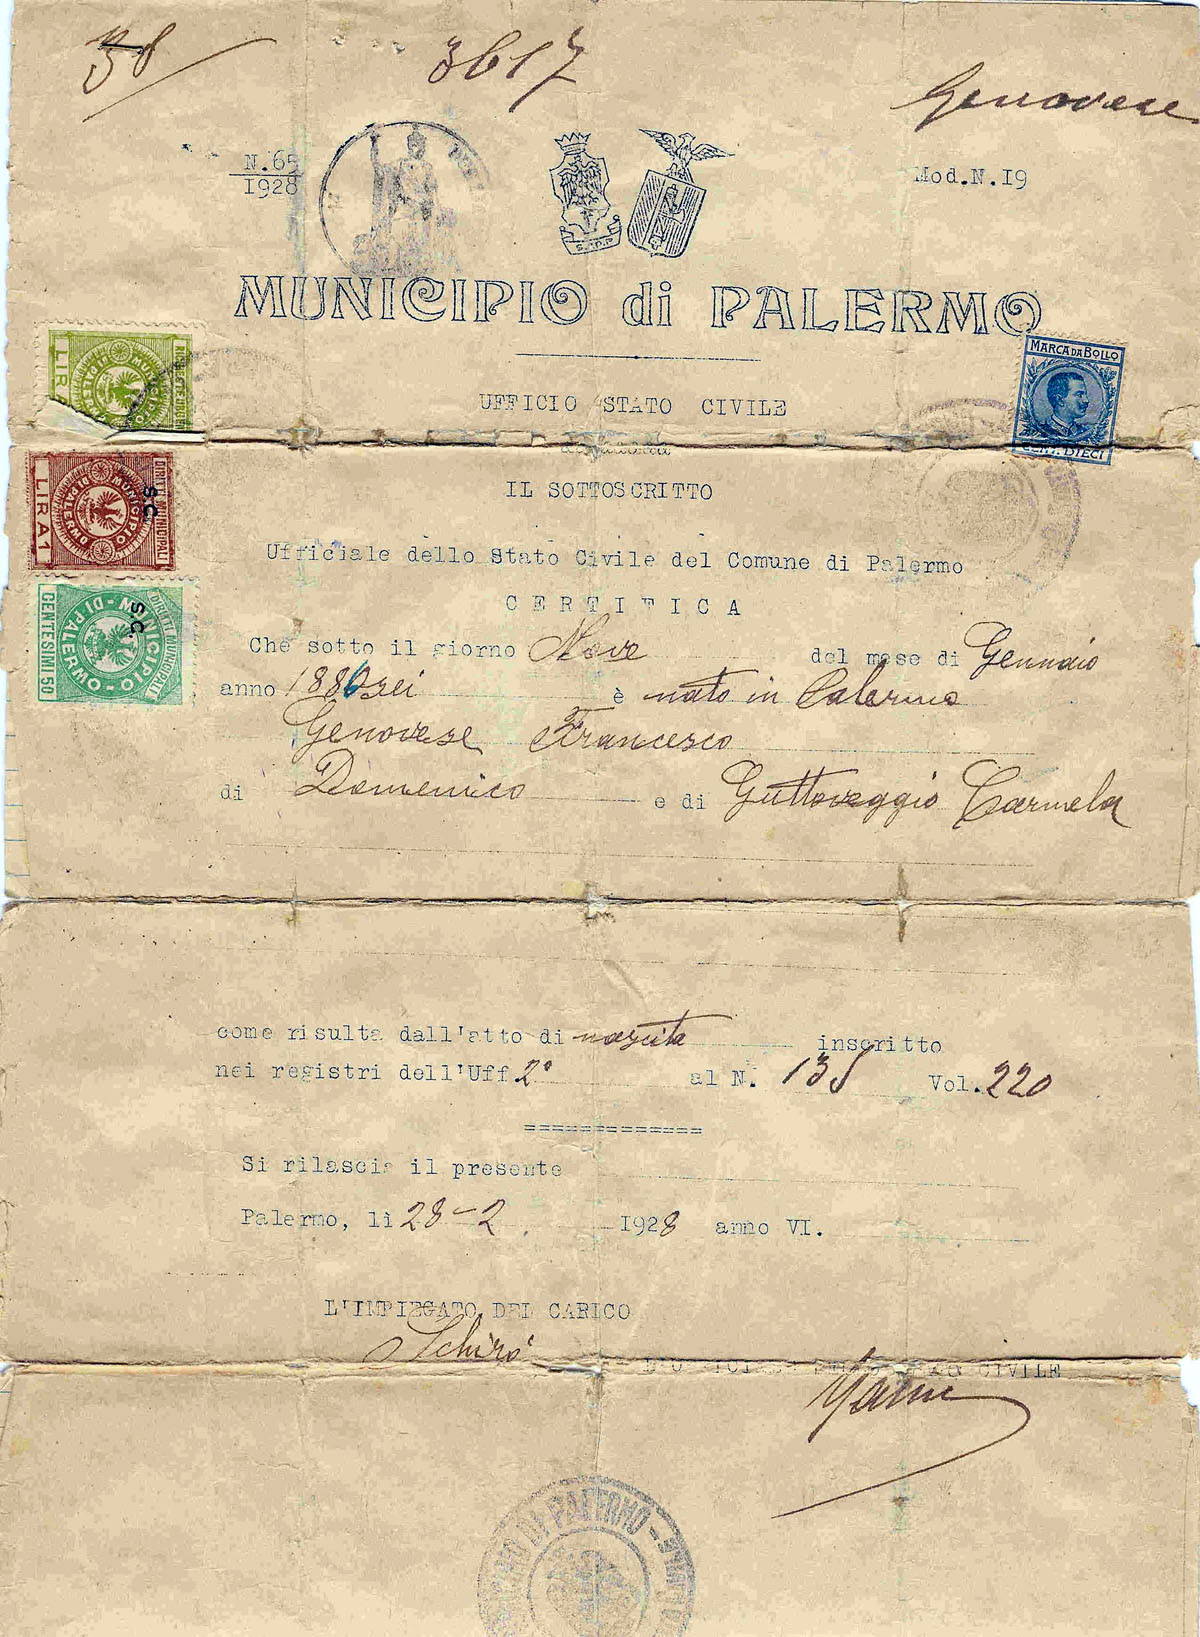 38
3617
Genovese
N. 65
1928
Mod. N. 19
MUNICIPIO di PALERMO
UFFICIO STATO CIVILE
MARCA DA BOLLO
CENT. DIECI
MUNICIPIO DI PALERMO
LIRA
IL SOTTOSCRITTO
DIRITTI MUNICIPALI
MUNICIPIO DI PALERMO
S.C.
LIRA 1
Ufficiale dello Stato Civile del Comune di Palermo
CERTIFICA
DIRITTI MUNICIPALI
MUNICIPIO DI PALERMO
S.C.
CENTESIMI 50
Che sotto il giorno Nove del mese di Gennaio
anno 1886 sei è nato in Palermo
Genovese Francesco
di Domenico e di Guttoveggio Carmela
come risulta dall'atto di nascita inscritto
nei registri dell'Uff 2° al N. 135 Vol. 220
=============
Si rilascia il presente
Palermo, lì 28-2 1928 anno VI.
L'IMPIEGATO DEL CARICO
Schirò
CIVILE
DI PALERMO